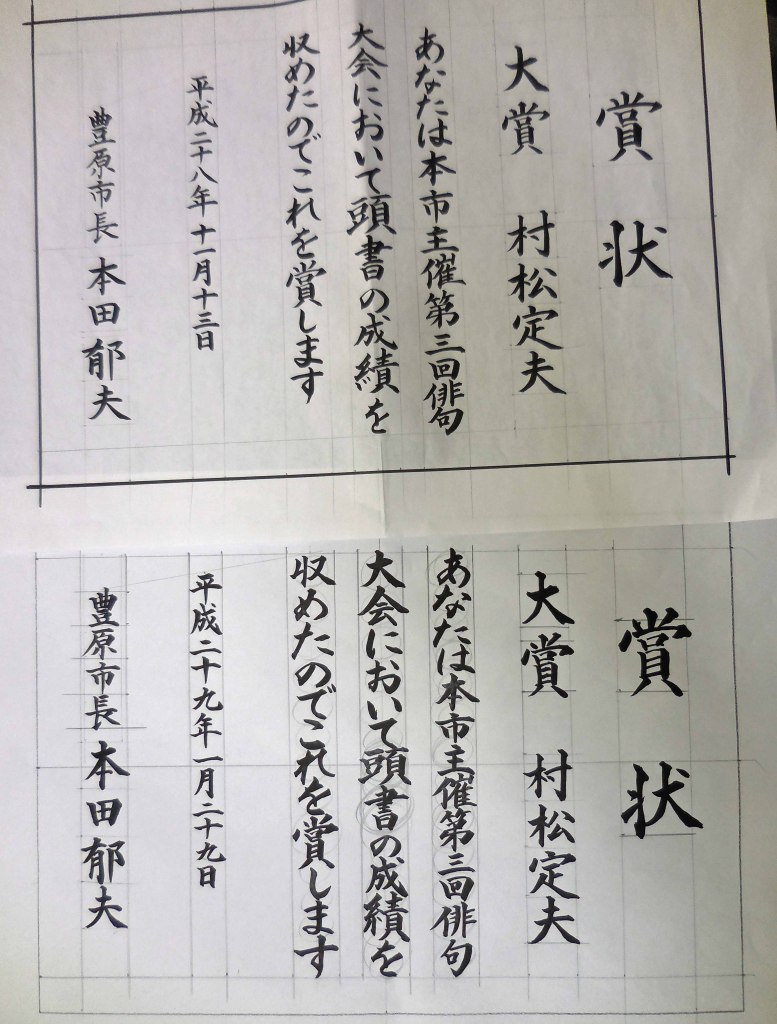 賞状
大賞 村松定夫
あなたは本市主催第三回俳句
大会において頭書の成績を
収めたのでこれを賞します
平成二十八年十一月十三日
豊原市長 本田郁夫
賞状
大賞 村松定夫
あなたは本市主催第三回俳句
大会において頭書の成績を
収めたのでこれを賞します
平成二十九年一月二十九日
豊原市長 本田郁夫